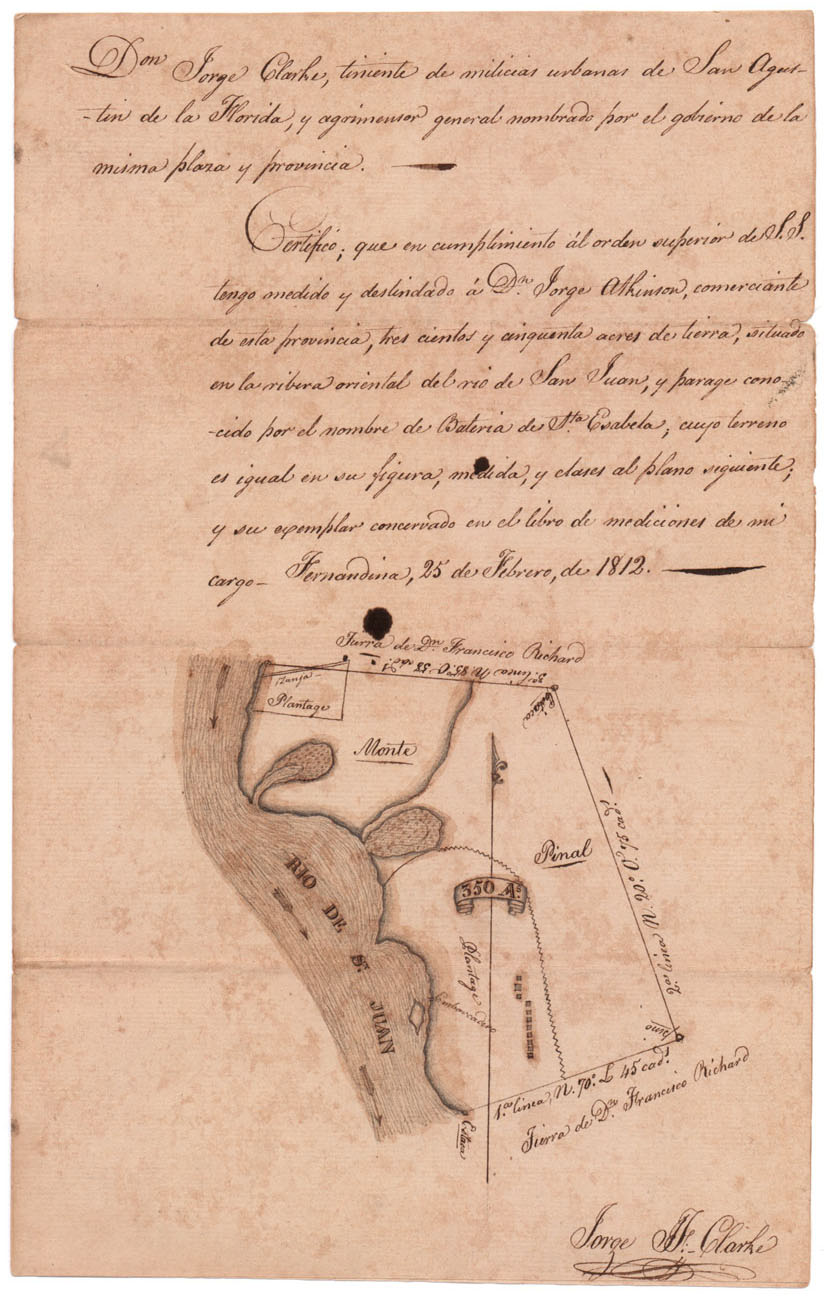 Don Jorge Clarke, tiniente de milicias urbanas de San Agus-
-tin de la Florida, y agrimensor general nombrado por el gobierno de la
misma plaza y provincia.
Certifico; que en cumplimiento ál orden superior de S.S.
tengo medido y deslindado á Dn. Jorge Atkinson, comerciante
de esta provincia, tres cientos y cinquenta acres de tierra, situado
en la ribera oriental del rio de San Juan, y parage cono-
-cido por el nombre de Bateria de Sta. Esabela; cuyo terreno
es igual en su figura, medida, y clases al plano siguiente;
y su exemplar concervado en el libro de mediciones de mi
cargo— Fernandina, 25 de Febrero, de 1812.
Tierra de Dn. Francisco Richard
3a. linea N. 85° O. 55 cad.s
Zanja
Plantage
Estaca
Monte
Pinal
350 As.
2a. linea N. 20° O. 75 cad.s
RIO DE Sn. JUAN
Plantage
Embarcadero
pino
1a. linea, N. 70° E 45 cad.s
Tierra de Dn. Francisco Richard
Estaca
Jorge J. F. Clarke